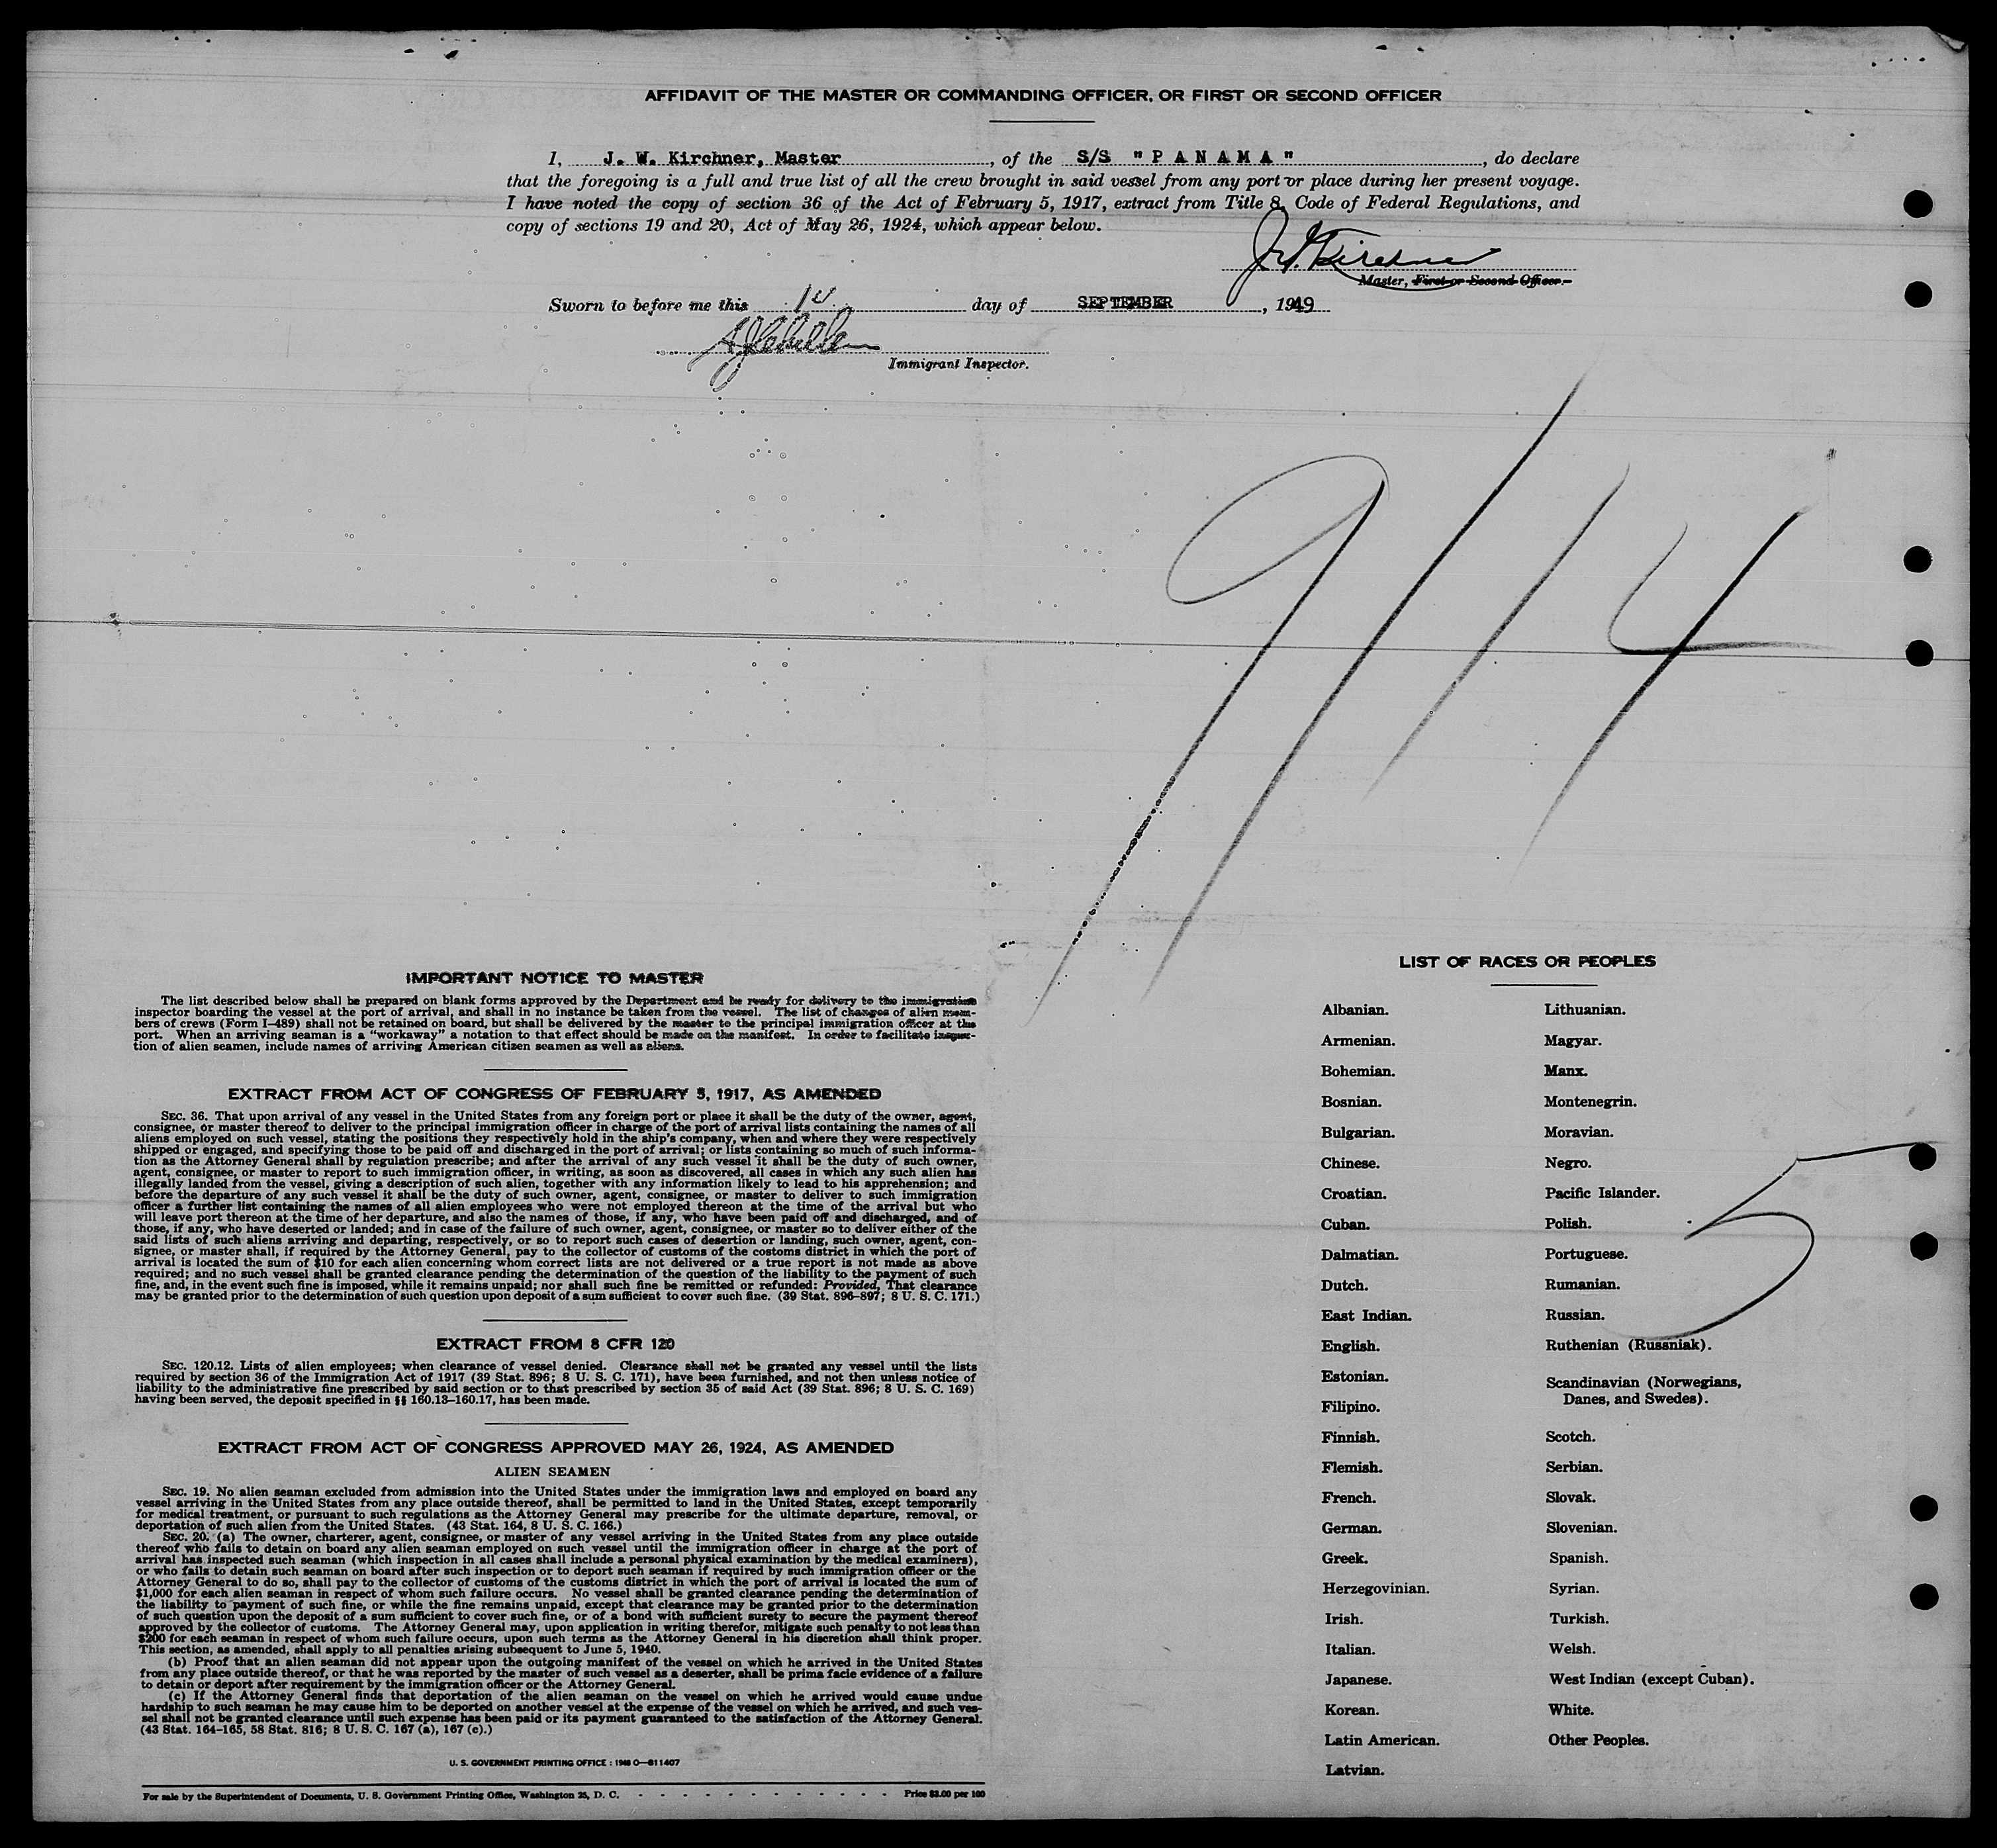 AFFIDAVIT OF THE MASTER OR COMMANDING OFFICER, OR FIRST OR SECOND OFFICER
I, J. W. Kirchner, Master, of the S/S "PANAMA", do declare
that the foregoing is a full and true list of all the crew brought in said vessel from any port or place during her present voyage.
I have noted the copy of section 36 of the Act of February 5, 1917, extract from Title 8, Code of Federal Regulations, and
copy of sections 19 and 20, Act of May 26, 1924, which appear below.
J.W. Kirchner
Master, First or Second Officer.
Sworn to before me this 14 day of SEPTEMBER, 1949
Immigrant Inspector.
9/14
IMPORTANT NOTICE TO MASTER
The list described below shall be prepared on blank forms approved by the Department and be ready for delivery to the immigration
inspector boarding the vessel at the port of arrival, and shall in no instance be taken from the vessel. The list of changes of alien mem-
bers of crews (Form I-489) shall not be retained on board, but shall be delivered by the master to the principal immigration officer at the
port. When an arriving seaman is a "workaway" a notation to that effect should be made on the manifest. In order to facilitate inspec-
tion of alien seamen, include names of arriving American citizen seamen as well as aliens.
EXTRACT FROM ACT OF CONGRESS OF FEBRUARY 5, 1917, AS AMENDED
SEC. 36. That upon arrival of any vessel in the United States from any foreign port or place it shall be the duty of the owner, agent,
consignee, or master thereof to deliver to the principal immigration officer in charge of the port of arrival lists containing the names of all
aliens employed on such vessel, stating the positions they respectively hold in the ship's company, when and where they were respectively
shipped or engaged, and specifying those to be paid off and discharged in the port of arrival; or lists containing so much of such informa-
tion as the Attorney General shall by regulation prescribe; and after the arrival of any such vessel it shall be the duty of such owner,
agent, consignee, or master to report to such immigration officer, in writing, as soon as discovered, all cases in which any such alien has
illegally landed from the vessel, giving a description of such alien, together with any information likely to lead to his apprehension; and
before the departure of any such vessel it shall be the duty of such owner, agent, consignee, or master to deliver to such immigration
officer a further list containing the names of all alien employees who were not employed thereon at the time of the arrival but who
will leave port thereon at the time of her departure, and also the names of those, if any, who have been paid off and discharged, and of
those, if any, who have deserted or landed; and in case of the failure of such owner, agent, consignee, or master so to deliver either of the
said lists of such aliens arriving and departing, respectively, or so to report such cases of desertion or landing, such owner, agent, con-
signee, or master shall, if required by the Attorney General, pay to the collector of customs of the costoms district in which the port of
arrival is located the sum of $10 for each alien concerning whom correct lists are not delivered or a true report is not made as above
required; and no such vessel shall be granted clearance pending the determination of the question of the liability to the payment of such
fine, and, in the event such fine is imposed, while it remains unpaid; nor shall such fine be remitted or refunded: Provided, That clearance
may be granted prior to the determination of such question upon deposit of a sum sufficient to cover such fine. (39 Stat. 896-897; 8 U. S. C. 171.)
EXTRACT FROM 8 CFR 120
SEC. 120.12. Lists of alien employees; when clearance of vessel denied. Clearance shall not be granted any vessel until the lists
required by section 36 of the Immigration Act of 1917 (39 Stat. 896; 8 U. S. C. 171), have been furnished, and not then unless notice of
liability to the administrative fine prescribed by said section or to that prescribed by section 35 of said Act (39 Stat. 896; 8 U. S. C. 169)
having been served, the deposit specified in §§ 160.13-160.17, has been made.
EXTRACT FROM ACT OF CONGRESS APPROVED MAY 26, 1924, AS AMENDED
ALIEN SEAMEN
SEC. 19. No alien seaman excluded from admission into the United States under the immigration laws and employed on board any
vessel arriving in the United States from any place outside thereof, shall be permitted to land in the United States, except temporarily
for medical treatment, or pursuant to such regulations as the Attorney General may prescribe for the ultimate departure, removal, or
deportation of such alien from the United States. (43 Stat. 164, 8 U. S. C. 166.)
SEC. 20. (a) The owner, charterer, agent, consignee, or master of any vessel arriving in the United States from any place outside
thereof who fails to detain on board any alien seaman employed on such vessel until the immigration officer in charge at the port of
arrival has inspected such seaman (which inspection in all cases shall include a personal physical examination by the medical examiners),
or who fails to detain such seaman on board after such inspection or to deport such seaman if required by such immigration officer or the
Attorney General to do so, shall pay to the collector of customs of the customs district in which the port of arrival is located the sum of
$1,000 for each alien seaman in respect of whom such failure occurs. No vessel shall be granted clearance pending the determination of
the liability to payment of such fine, or while the fine remains unpaid, except that clearance may be granted prior to the determination
of such question upon the deposit of a sum sufficient to cover such fine, or of a bond with sufficient surety to secure the payment thereof
approved by the collector of customs. The Attorney General may, upon application in writing therefor, mitigate such penalty to not less than
$200 for each seaman in respect of whom such failure occurs, upon such terms as the Attorney General in his discretion shall think proper.
This section, as amended, shall apply to all penalties arising subsequent to June 5, 1940.
(b) Proof that an alien seaman did not appear upon the outgoing manifest of the vessel on which he arrived in the United States
from any place outside thereof, or that he was reported by the master of such vessel as a deserter, shall be prima facie evidence of a failure
to detain or deport after requirement by the immigration officer or the Attorney General.
(c) If the Attorney General finds that deportation of the alien seaman on the vessel on which he arrived would cause undue
hardship to such seaman he may cause him to be deported on another vessel at the expense of the vessel on which he arrived, and such ves-
sel shall not be granted clearance until such expense has been paid or its payment guaranteed to the satisfaction of the Attorney General.
(43 Stat. 164-165, 58 Stat. 816; 8 U. S. C. 167 (a), 167 (c).)
U. S. GOVERNMENT PRINTING OFFICE : 1948 O—811407
For sale by the Superintendent of Documents, U. S. Government Printing Office, Washington 25, D. C. - - - - - - - - - - - - Price $3.00 per 100
LIST OF RACES OR PEOPLES
Albanian.
Armenian.
Bohemian.
Bosnian.
Bulgarian.
Chinese.
Croatian.
Cuban.
Dalmatian.
Dutch.
East Indian.
English.
Estonian.
Filipino.
Finnish.
Flemish.
French.
German.
Greek.
Herzegovinian.
Irish.
Italian.
Japanese.
Korean.
Latin American.
Latvian.
Lithuanian.
Magyar.
Manx.
Montenegrin.
Moravian.
Negro.
Pacific Islander.
Polish.
Portuguese.
Rumanian.
Russian.
Ruthenian (Russniak).
Scandinavian (Norwegians,
Danes, and Swedes).
Scotch.
Serbian.
Slovak.
Slovenian.
Spanish.
Syrian.
Turkish.
Welsh.
West Indian (except Cuban).
White.
Other Peoples.
5